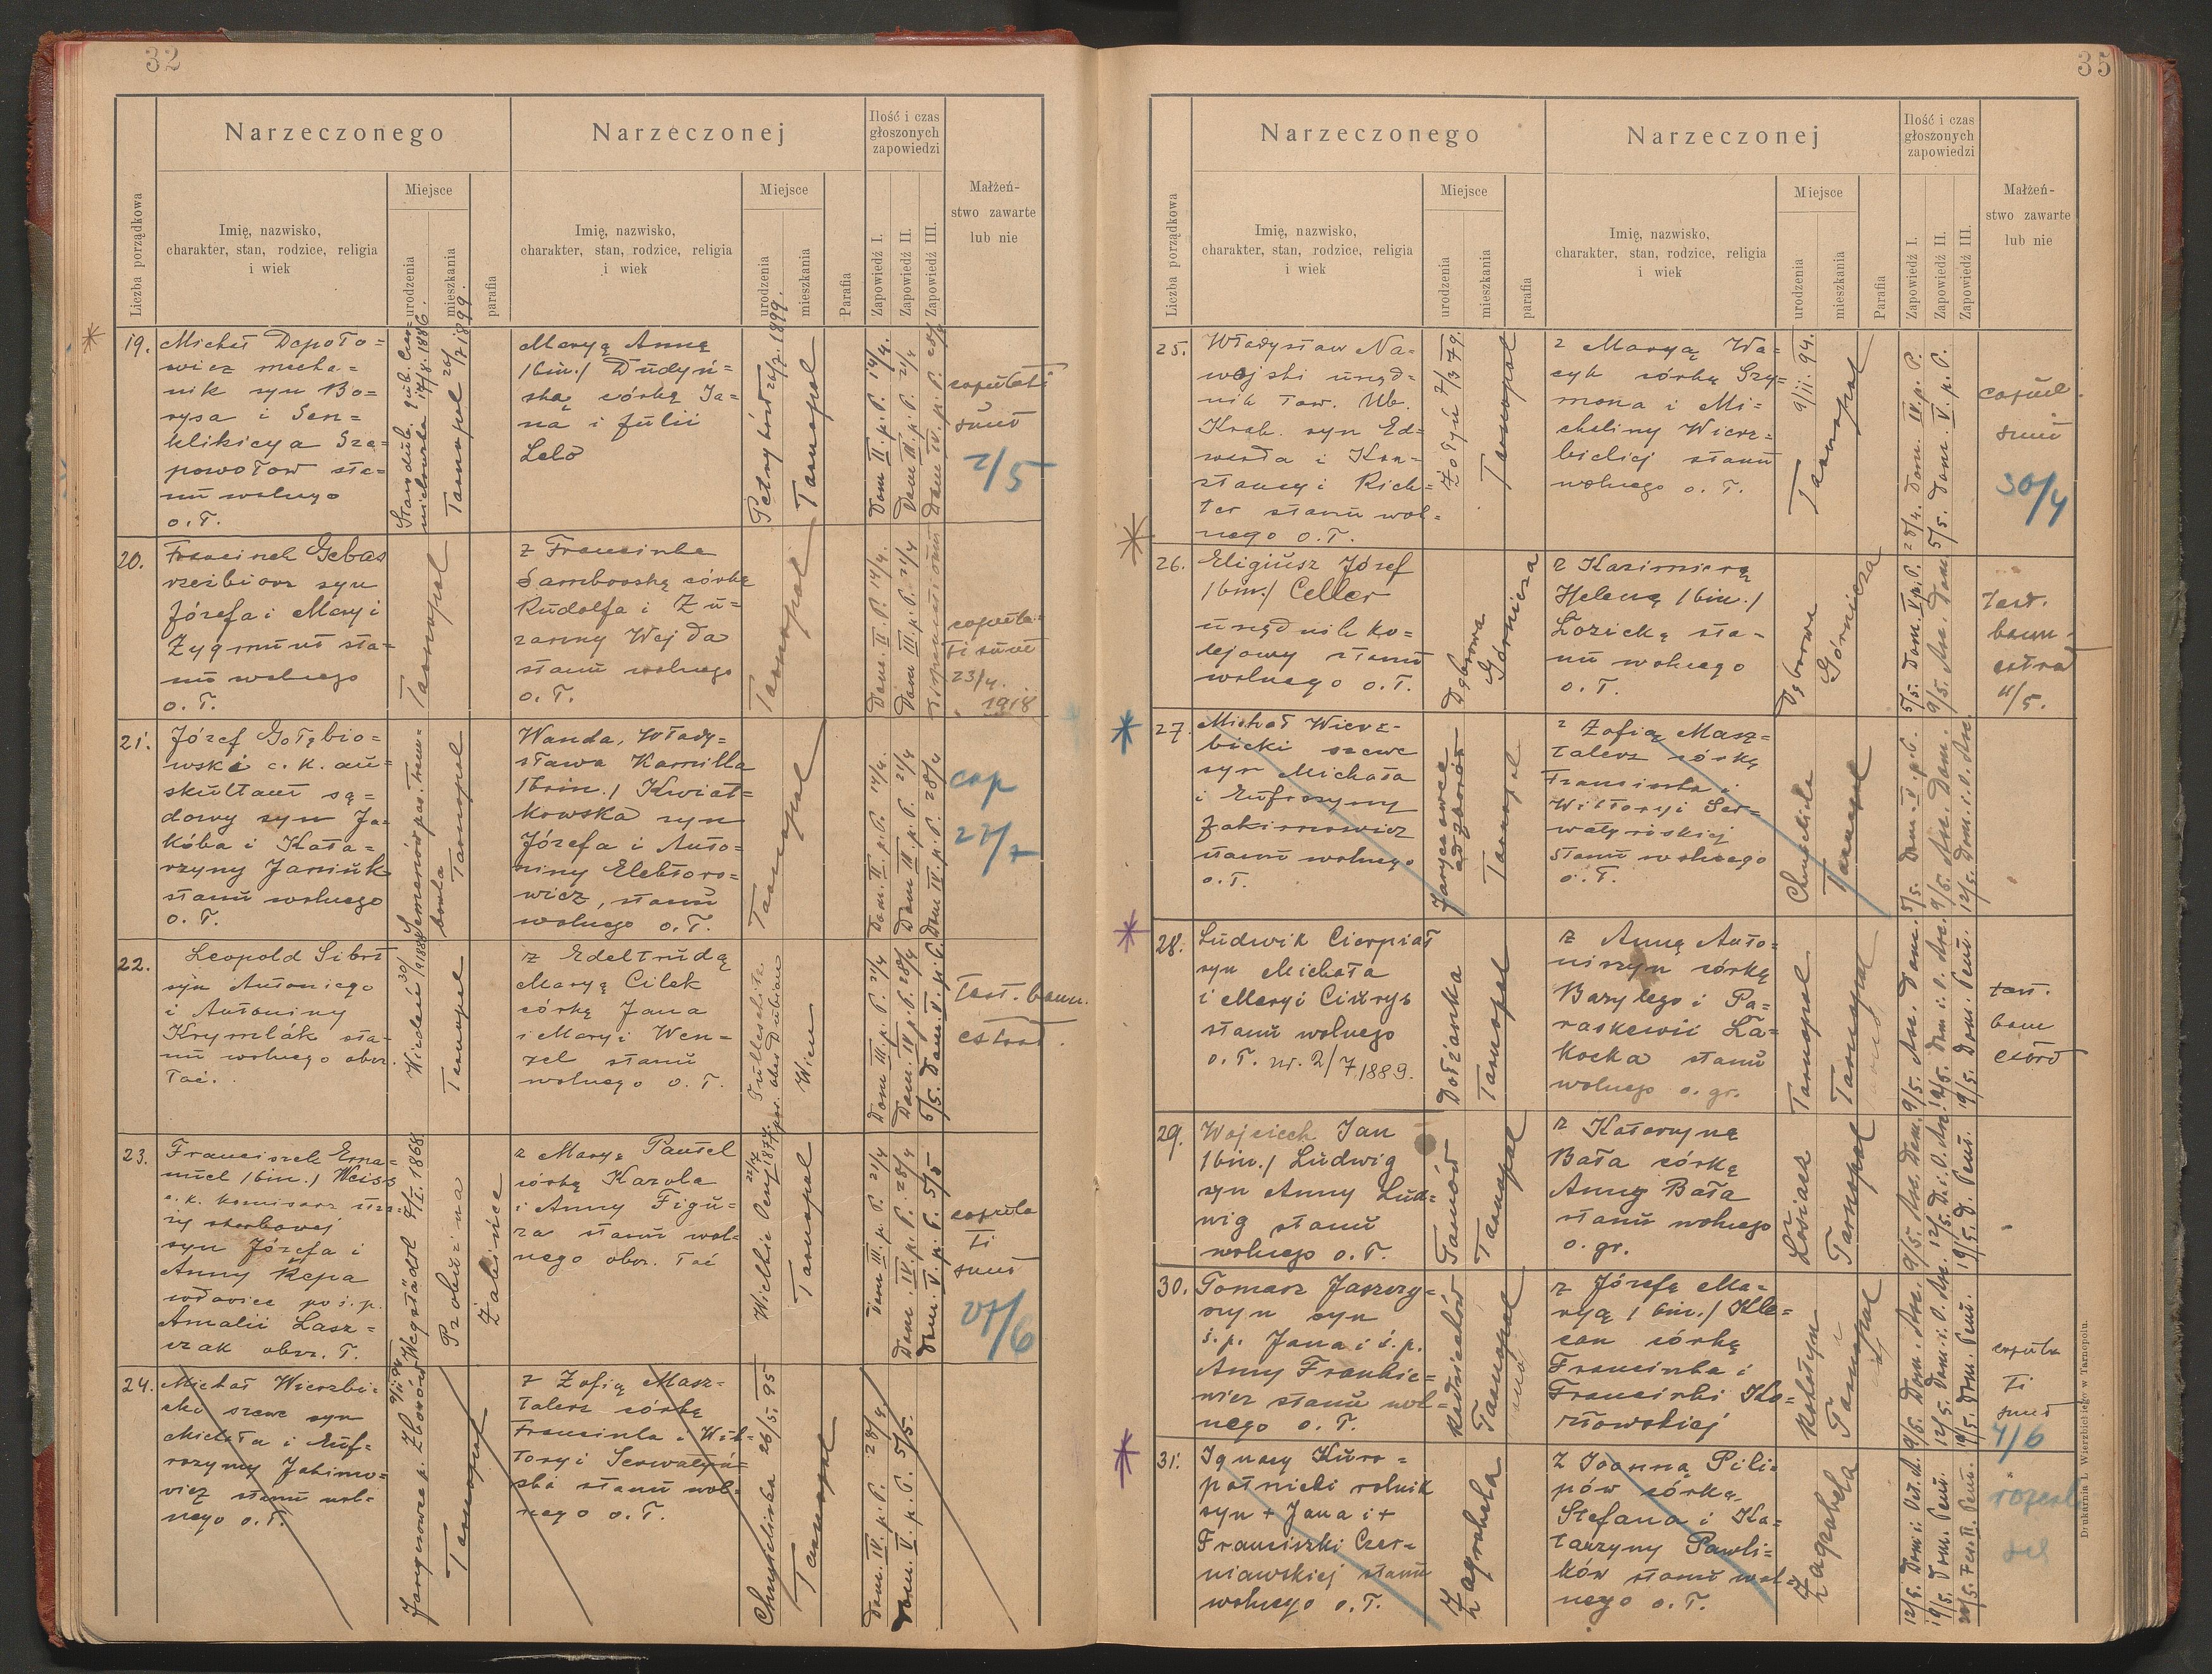 32
Narzeczonego
Narzeczonej
Ilość i czas
głoszonych
zapowiedzi
Liczba porządkowa
Imię, nazwisko,
charakter, stan, rodzice, religia
i wiek
Miejsce
urodzenia
mieszkania
parafia
Imię, nazwisko,
charakter, stan, rodzice, religia
i wiek
Miejsce
urodzenia
mieszkania
Parafia
Zapowiedź I.
Zapowiedź II.
Zapowiedź III.
Małżeń-
stwo zawarte
lub nie
19.
Michał Depoto=
wicz mecha=
nik syn Bo=
rysa i
nu wolnego
o. Ł.
17/8. 1886.
Tarnopol
1899.
Maryą Anną
/bin./ Dudyń=
ską córką Ja=
na i Julii
Lelo
1899.
Tarnopol
Dom II. p. P. 14/4.
Dom III. p. P. 21/4.
Dom IV. p. P. 28/4
copulati
sunt
2/5
20.
Franciszek Gebas
rzeźbiarz syn
Józefa i Maryi
Zygmunt sta=
nu wolnego
o. Ł.
Tarnopol
z Franciszka
Samborską córką
Rudolfa i Zu=
zanny Wajda
stanu wolnego
o. Ł.
Tarnopol
Dom. II. P. 14/4.
Dom III. p. P. 21/4
copula=
ti sunt
23/4.
1918
21.
Józef Gołębio=
wski c. k. au=
skultant są=
dowy syn Ja=
kóba i Kata=
rzyny Janiuk
stanu wolnego
o. Ł.
Tarnopol
Wanda, Włady=
sława Kamilla
/trin./ Kwiat=
kowska syn
Józefa i Anto=
niny Elektoro=
wicz, stanu
wolnego o. Ł.
Tarnopol
Dom. II p. P. 14/4.
Dom III. p. P. 21/4
Dom IV. p. P. 28/4
cop
22.
Leopold Sibrt
syn Antoniego
i Antoniny
Krymlák sta=
nu wolnego obrz.
łać.
Wiedeń
Tarnopol
z Edeltrudą
Maryą Cilek
córką Jana
i Maryi Wen=
zel stanu
wolnego o. Ł.
Wien
Dom III. p. P. 21/4
Dom. IV p. P. 28/4
5/5. Dom. V. p. P.
Test. bann.
extrad.
23.
Franciszek Ema=
nuel /bin./ Weiss
c. k. komisarz stra=
ży skarbowej
syn Józefa i
Anny Repa
wdowiec po ś. p.
Amalii Lasz=
czak obrz. Ł.
Wegstädl 1868.
Probużna
Żabińce
z Maryą Pantel
córką Karola
i Anny Figu=
ra stanu wol=
nego obrz. łać
Tarnopol
Dom III. p. P. 21/4
Dom. IV. p. P. 28/4
Dom. V. p. P. 5/5
copula
ti
sunt
24.
Michał Wierzbi=
cki szewc syn
Michała i Euf=
rozyny Jakimo=
wicz stanu wol=
nego o. Ł.
Tarnopol
z Zofią Masz=
talerz córką
Franciszka i Wik=
toryi Serwatyń=
ska stanu wol=
nego o. Ł.
Chmieliska 26/5. 95
Tarnopol
Dom. IV. p. P. 28/4
Dom. V. p. P. 5/5.
35
Narzeczonego
Narzeczonej
Ilość i czas
głoszonych
zapowiedzi
Liczba porządkowa
Imię, nazwisko,
charakter, stan, rodzice, religia
i wiek
Miejsce
urodzenia
mieszkania
parafia
Imię, nazwisko,
charakter, stan, rodzice, religia
i wiek
Miejsce
urodzenia
mieszkania
Parafia
Zapowiedź I.
Zapowiedź II.
Zapowiedź III.
Małżeń-
stwo zawarte
lub nie
25.
Władysław Na=
wojski urzęd=
nik Tow. Ub.
Krak. syn Ed=
warda i Kon=
stancyi Rich=
ter stanu wol=
nego o. Ł.
Tarnopol
z Maryą Wa=
cyk córką Szy=
mona i Mi=
chaliny Wierz=
bickiej stanu
wolnego o. Ł.
9/11. 94.
Tarnopol
28/4. Dom. IV. p. P.
5/5. Dom. V. p. P.
copul.
sunt
30/4
26.
Eligiusz Józef
/bin./ Celler
urzędnik ko=
lejowy stanu
wolnego o. Ł.
Dąbrowa
Górnicza
z Kazimierą
Heleną /bin./
Łozicką sta=
nu wolnego
o. Ł.
Dąbrowa
Górnicza
5/5. Dom. V. p. P.
9/5. As. Dom.
Test.
bann.
extrad
11/5.
27.
Michał Wierz=
bicki szewc
syn Michała
i Eufrozyny
Jakimowicz
stanu wolnego
o. Ł.
Tarnopol
z Zofią Masz=
talerz córką
Franciszka i
Wiktoryi Ser=
watyńskiej
stanu wolnego
o. Ł.
Chmieliska
Tarnopol
5/5. Dom. V. p. P.
9/5. As. Dom.
12/5. Dom. i. o. As.
28.
Ludwik Cierpiał
syn Michała
i Maryi
stanu wolnego
o. Ł. ur. 2/7 1889.
Dołżanka
Tarnopol
z Anną Anto=
niszyn córką
Bazylego i Pa=
raskewii Ła=
kocka stanu
wolnego o. gr.
Tarnopol
Tarnopol
9/5. Asc. Dom.
12/5. Dom. i. o. Asc.
19/5. Dom. Pent.
test.
bann
extrd
29.
Wojciech Jan
/bin./ Ludwig
syn Anny Lud=
wig stanu
wolnego o. Ł.
Tarnopol
z Katarzyną
Bała córką
Anny Bała
stanu wolnego
o. gr.
Tarnopol
9/5. As. Dom.
12/5. D. i. O. As.
19/5. D. Pent.
30.
Tomasz Jaszczy=
szyn syn
ś. p. Jana i ś. p.
Anny Frankie=
wicz stanu wol=
nego o. Ł.
Tarnopol
z Józefą Ma=
ryą /bin./ Kle=
can córką
Franciszka i
Franciszki Ko=
złowskiej
Rohatyn
Tarnopol
9/5. Dom. Asc.
12/5. Dom i. O. As.
19/5. Dom. Pent.
copula
ti
sunt
4/6
31.
Ignacy Kuro=
patnicki rolnik
syn + Jana i +
Franciszki Czer=
niawskiej stanu
wolnego o. Ł.
Zagrobela
z Joanną Pili=
pów córką
Stefana i Ka=
tarzyny Pawli=
ków stanu wol=
nego o. Ł.
Zagrobela
12/5. Dom i. Oct. A.
19/5. Dom. Pent.
20/5. Fer. II. Pent.
Drukarnia L. Wierzbickiego w Tarnopolu.